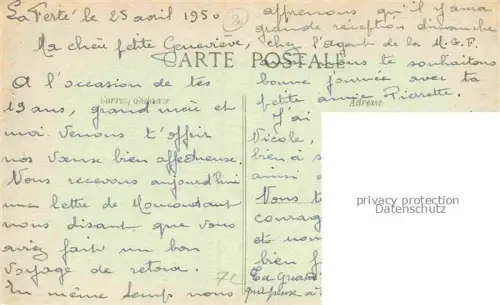 La Ferté le 25 avril 1950
Ma chère petite Geneviève,
CARTE POSTALE
Correspondance
A l'occasion de tes
19 ans, grand mère et
moi venons t'offrir
nos vœux bien affectueux.
Nous recevons aujourd'hui
une lettre de
nous disant que vous
aviez fait un bon
voyage de retour.
En même temps nous
apprenons qu'il y aura
grande réception dimanche
chez l'agent de la M.G.F.
te souhaitons
bonne journée avec ta
petite amie Pierrette.
Adresse
J'ai
Nicole,
bien à s
ainsi
Nous t
courag
et nou
bien f
Ta Grand
qui pense à t
privacy protection
Datenschutz